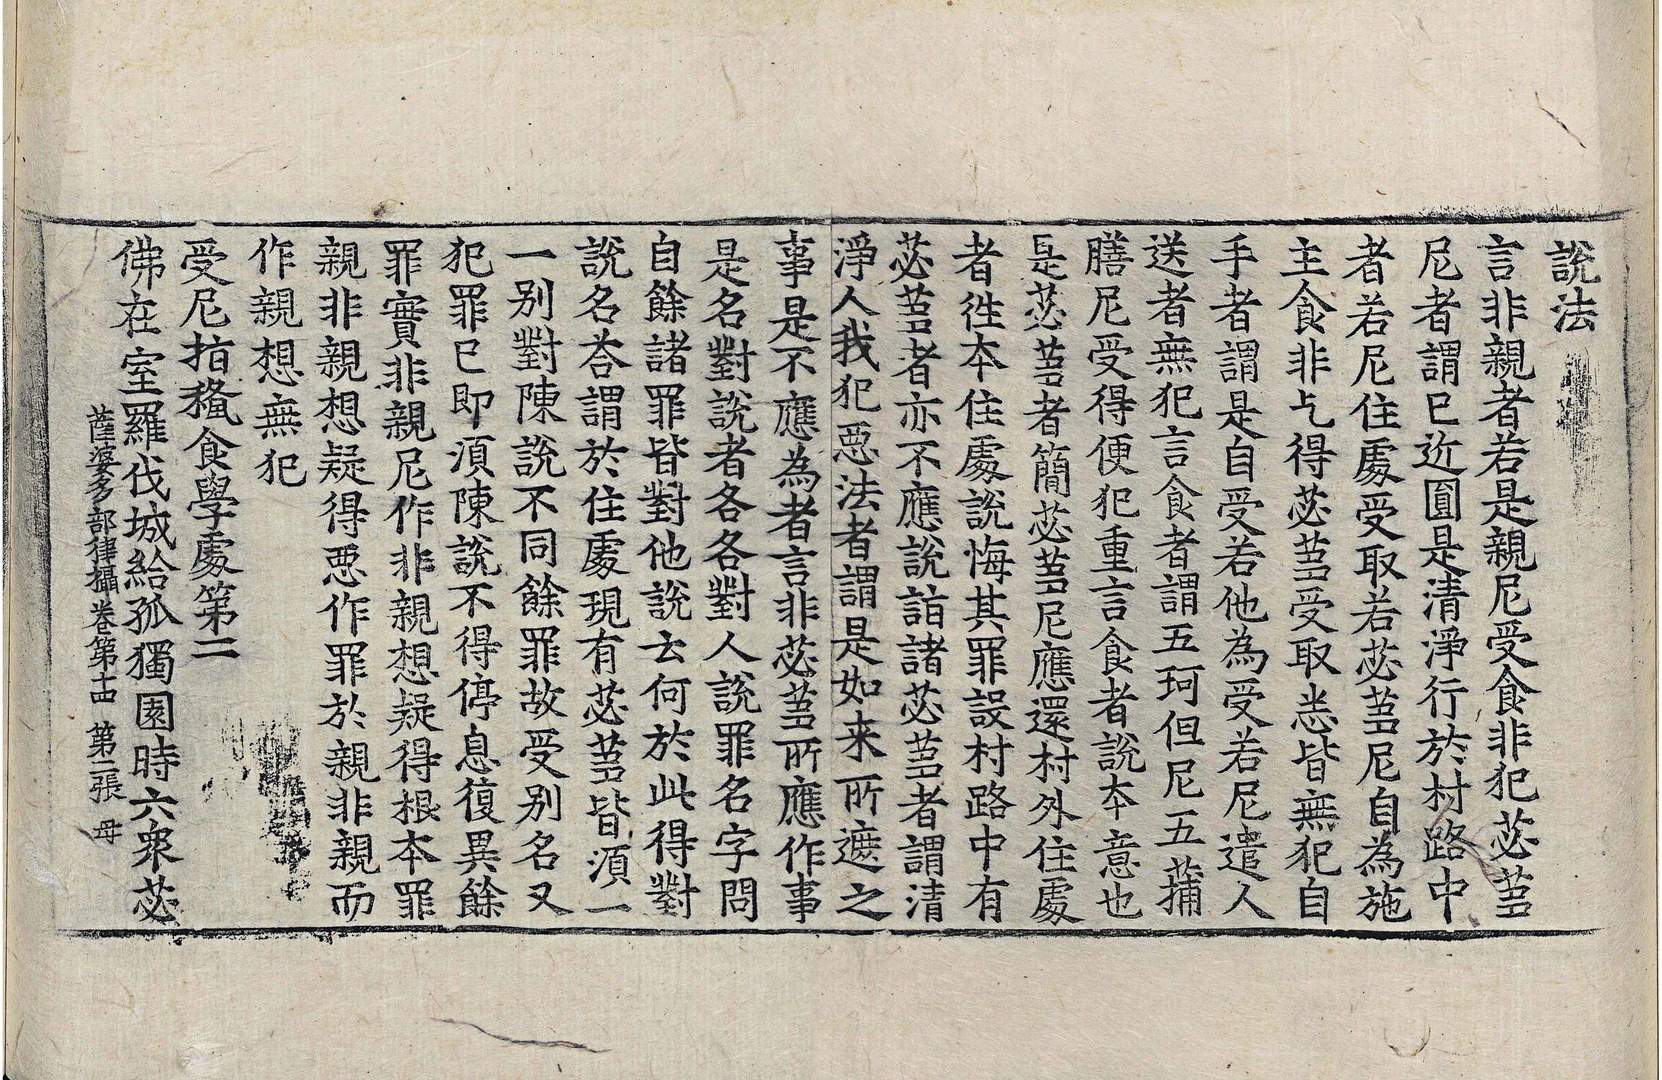 說法
言非親者若是親尼受食非犯苾蒭
尼者謂已近圓是清淨行於村路中
者若尼住處受取若苾蒭尼自為施
主食非乞得苾蒭受取悉皆無犯自
手者謂是自受若他為受若尼遣人
送者無犯言食者謂五珂但尼五蒲
膳尼受得便犯重言食者說本意也
是苾蒭者簡苾蒭尼應還村外住處
者徃本住處說悔其罪設村路中有
苾蒭者亦不應說詣諸苾蒭者謂清
淨人我犯惡法者謂是如来所遮之
事是不應為者言非苾蒭所應作事
是名對說者各各對人說罪名字問
自餘諸罪皆對他說云何於此得對
說名荅謂於住處現有苾蒭皆湏一
一別對陳說不同餘罪故受別名又
犯罪已即湏陳說不得停息復異餘
罪實非親尼作非親想疑得根本罪
親非親想疑得悪作罪於親非親而
作親想無犯
受尼指授食學處第二
佛在室羅伐城給孤獨園時六衆苾
薩婆多部律攝卷第十四 第二張 母